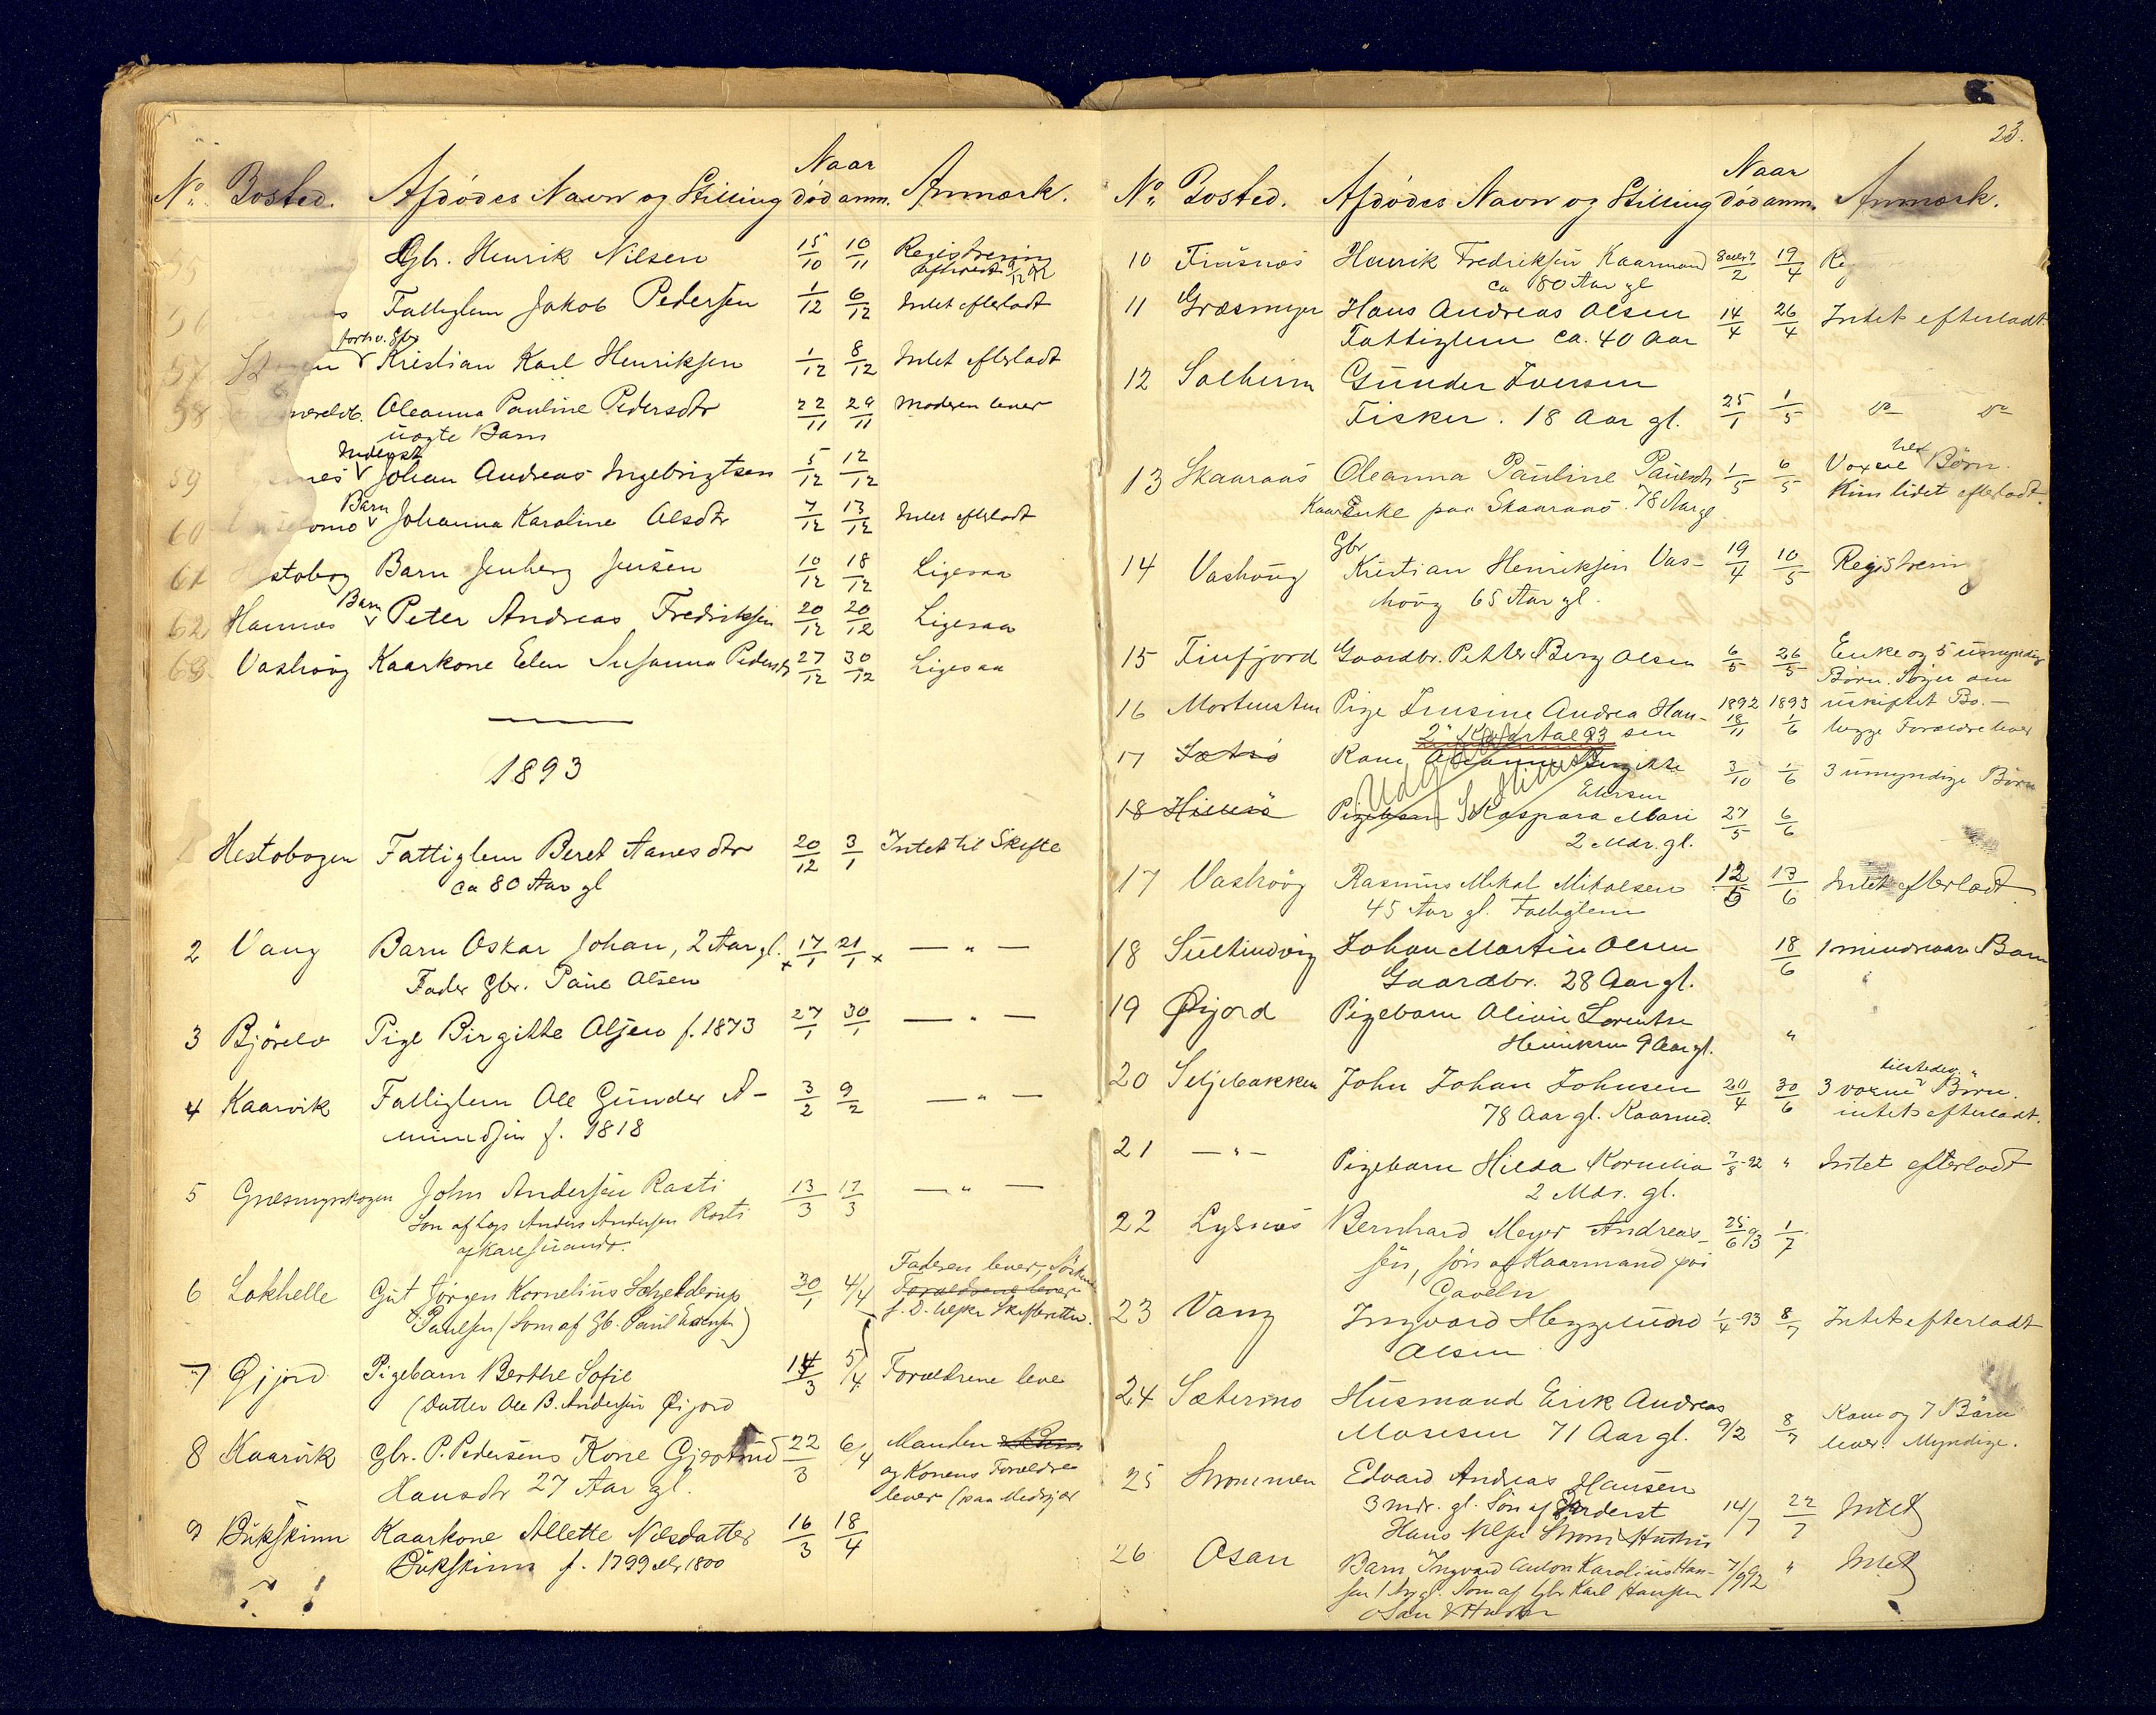 Naar
No. Bosted. Afdödes Navn og Stilling död anm. Anmærk.
55 Gbr. Henrik Nilsen 15/10 10/11 Registrering
afholdt 9/12 92
56 Fattiglem Jakob Pedersen 1/12 6/12 Intet efterladt
forhv. Gbr
57 Kristian Karl Henriksen 1/12 8/12 Intet efterladt
58 Oleanna Pauline Pedersdtr 22/11 29/11 Moderen lever
uægte Barn
Inderst
59 Johan Andreas Ingebrigtsen 5/12 12/12
Barn
60 Johanna Karoline Olsdtr 7/12 13/12 Intet efterladt
61 stobog Barn Jenberg Jensen 10/12 18/12 Ligesaa
Barn
62 Hannes Peter Andreas Fredriksen 20/12 20/12 Ligesaa
63 Vashöug Kaarkone Elen Susanna Pedersdtr 27/12 30/12 Ligesaa
1893
1 Hestobogen Fattiglem Beret Aanesdtr 20/12 3/1 Intet til Skifte
ca 80 Aar gl
2 Vang Barn Oskar Johan, 2 Aar gl. 17/1 21/1 — " —
Fader Gbr. Paul Olsen
3 Björelv Pige Birgitte Olsen f. 1873 27/1 30/1 — " —
4 Kaarvik Fattiglem Ole Gunder A- 3/2 9/2 — " —
mundsen f. 1818
5 Græsmyrskogen John Andersen Rasti 13/3 17/3 — " —
Sön af Lap Anders Andersen Rasti
af Karesuando.
Faderen lever,
6 Lakhelle Gut Jörgen Kornelius Schjelderup 30/1 4/4 Forældrene lever
Paulsen (Søn af Gb. Paul Evensen)
7 Øijord Pigebarn Berthe Sofie 14/3 5/4 Forældrene lever
(Datter Ole B. Andersen Øijord
8 Kaarvik Gbr. P. Pedersens Kone Gjertrud 22/3 6/4 Manden
Hansdtr 27 Aar gl. og Konens Forældre
lever
9 Bukskinn Kaarkone Allette Nilsdatter 16/3 18/4
Bukskinn f. 1799 elr 1800
23.
Naar
No. Bosted. Afdödes Navn og Stilling död anm. Anmærk.
10 Finsnæs Henrik Fredriksen Kaarmand 8 eller 9/2 19/4 Reg
ca 80 Aar gl
11 Græsmyr Hans Andreas Olsen 14/4 26/4 Intet efterladt.
Fattiglem ca. 40 Aar
12 Solheim Gunder Iversen
Fisker. 18 Aar gl. 25/1 1/5 do do
13 Skaaraas Oleanna Pauline Paulsdtr 1/5 6/5 Voxne Börn.
Kaarenke paa Skaaraas. 78 Aar gl. Kun lidet efterladt.
Gbr
14 Vashöug Kristian Henriksen Vas- 19/4 10/5 Registrering
höug 65 Aar gl.
15 Finfjord Gaardbr. Petter Berg Olsen 6/5 26/5 Enke og 5 umyndige
Börn. Söger om
16 Mortensten Pige Ensine Andrea Han- 1892 18/11 1893 1/6 uskiftet Bo.—
sen begge Forældre lever
2' Kvartal 93
17 Kone Birgitte 3/10 1/6 3 umyndige Börn
Elersen
18 Pigebarn Kaspara Mari 27/5 6/6
2 Mdr. gl.
17 Vashöug Rasmus Mikal Mikalsen 12/5 13/6 Intet efterladt
45 Aar gl. Fattiglem
18 Sultindvig Johan Martin Olsen 18/6 1 mindreaar. Barn
Gaardbr. 28 Aar gl.
19 Øijord Pigebarn Olivie Lorentse
Henriksen 9 Aar gl. "
tilstede
20 Seljebakken John Johan Johnsen 20/4 30/6 3 voxne Börn.
78 Aar gl. Kaarmd. intet efterladt.
21 — " — Pigebarn Hilda Kornelia 7/8-92 " Intet efterladt
2 Mdr. gl.
22 Lysnes Bernhard Meyer Andreas- 25/6 93 1/7
sen, sön af Kaarmand paa
Gaveln
23 Vang Ingvard Heggelund 1/4-93 8/7 Intet efterladt
Olsen
24 Sætermo Husmand Erik Andreas
Mosesen 71 Aar gl. 9/2 8/7 Kone og 7 Börn
lever. Myndige.
25 Strömmen Edvard Andreas Hansen
3 mdr. gl. Sön af Inderst 14/7 22/7 Intet
Hans Nilsen Ström & Hustru
26 Osan Barn Ingvard Anton Karolius Han- 7/9 92 " Intet
sen 1 Aar gl. Sön af Gbr Karl Hansen
Osan & Hustru